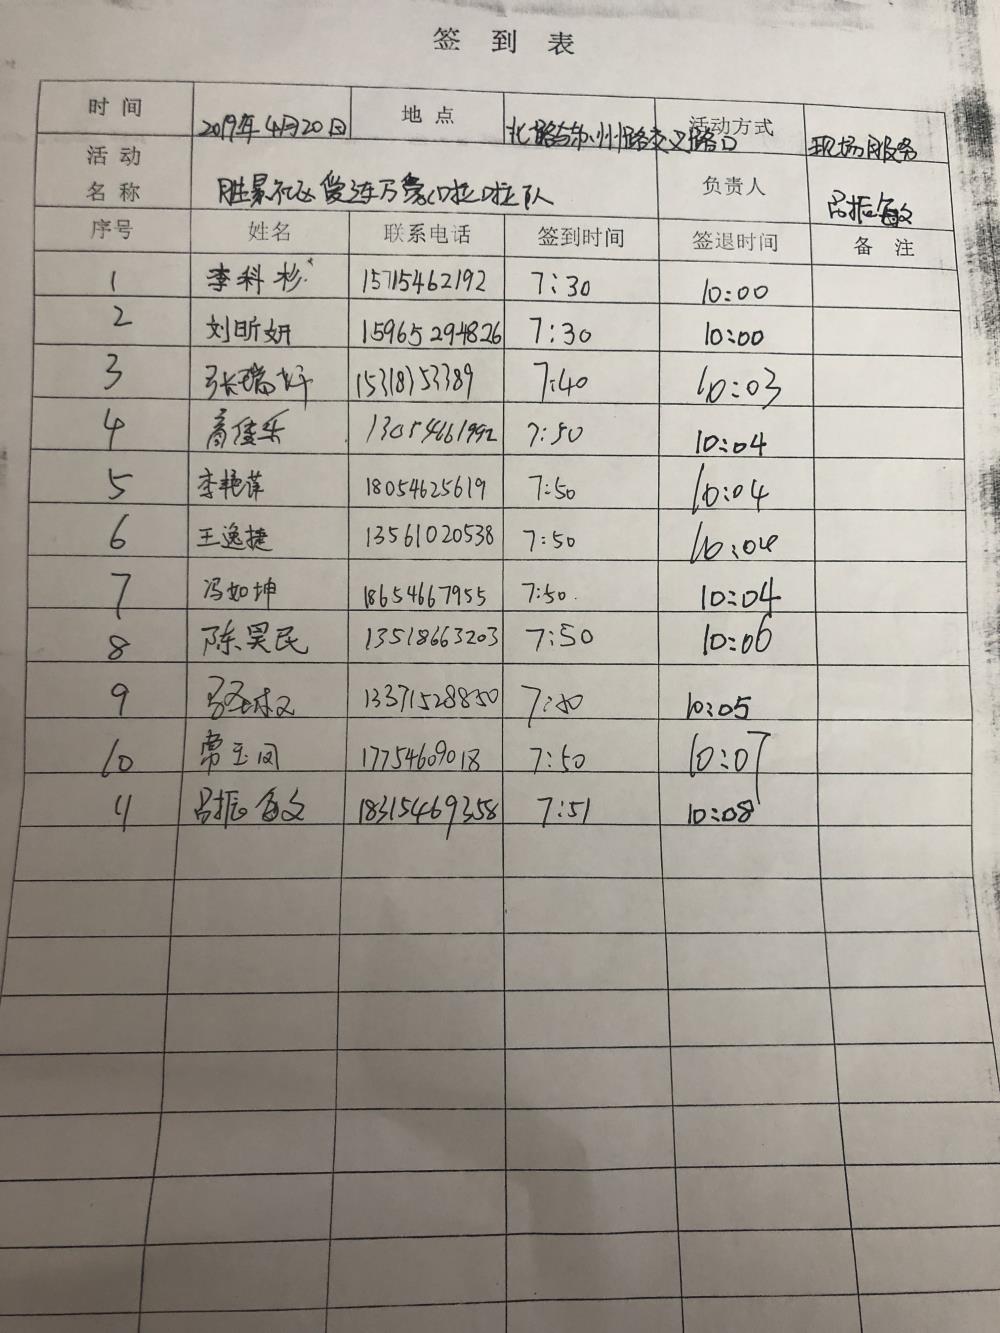 签到表
时间 2019年4月20日 地点 北一路与苏州路交叉路口 活动方式 现场服务
活动
名称 胜景社区爱连万家啦啦队 负责人 吕振敏
序号 姓名 联系电话 签到时间 签退时间 备注
1 李科杉 15715462192 7:30 10:00
2 刘昕妍 15965294826 7:30 10:00
3 张瑞婷 15318353389 7:40 10:03
4 高佳乐 13054661992 7:50 10:04
5 李艳萍 18054625619 7:50 10:04
6 王逸捷 13561020538 7:50 10:04
7 冯如坤 18654667955 7:50 10:04
8 陈昊民 13518663203 7:50 10:06
9 13371528850 7:50 10:05
10 常玉闪 17754609018 7:50 10:07
11 吕振敏 18315469358 7:51 10:08